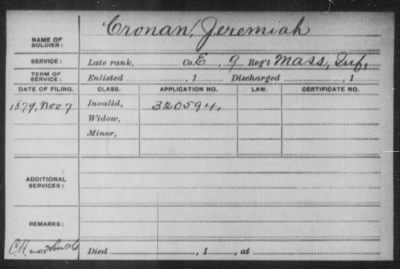 NAME OF SOLDIER: Cronan, Jeremiah
SERVICE: Late rank, Co. E, 9 Reg't Mass, Inf,
TERM OF SERVICE: Enlisted , 1 Discharged , 1
DATE OF FILING. CLASS. APPLICATION NO. LAW. CERTIFICATE NO.
1879, Nov. 7 Invalid, 320594,
Widow,
Minor,
ADDITIONAL SERVICES:
REMARKS:
Died , 1 , at